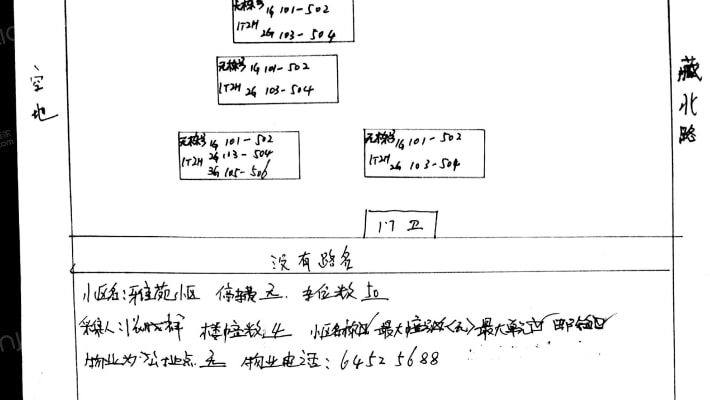 无栋号 1G 101-502
1T2H 2G 103-504
无栋号 1G 101-502
1T2H 2G 103-504
空地
藏北路
无栋号 1G 101-502
1T2H 2G 103-504
3G 105-506
无栋号 1G 101-502
1T2H 2G 103-504
门卫
没有路名
小区名:雅佳苑小区 停车费 无. 车位数 50
采集人: 楼幢数 4 小区名称 最大幢号<无> 最大单元 邮箱
物业办公地点 无 物业电话: 6452 5688